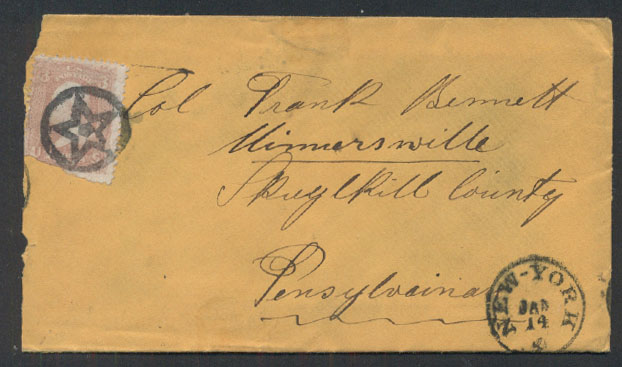 Col Frank Bennett
Minnersville
Skuylkill County
Pensylvaina
NEW-YORK
JAN
14